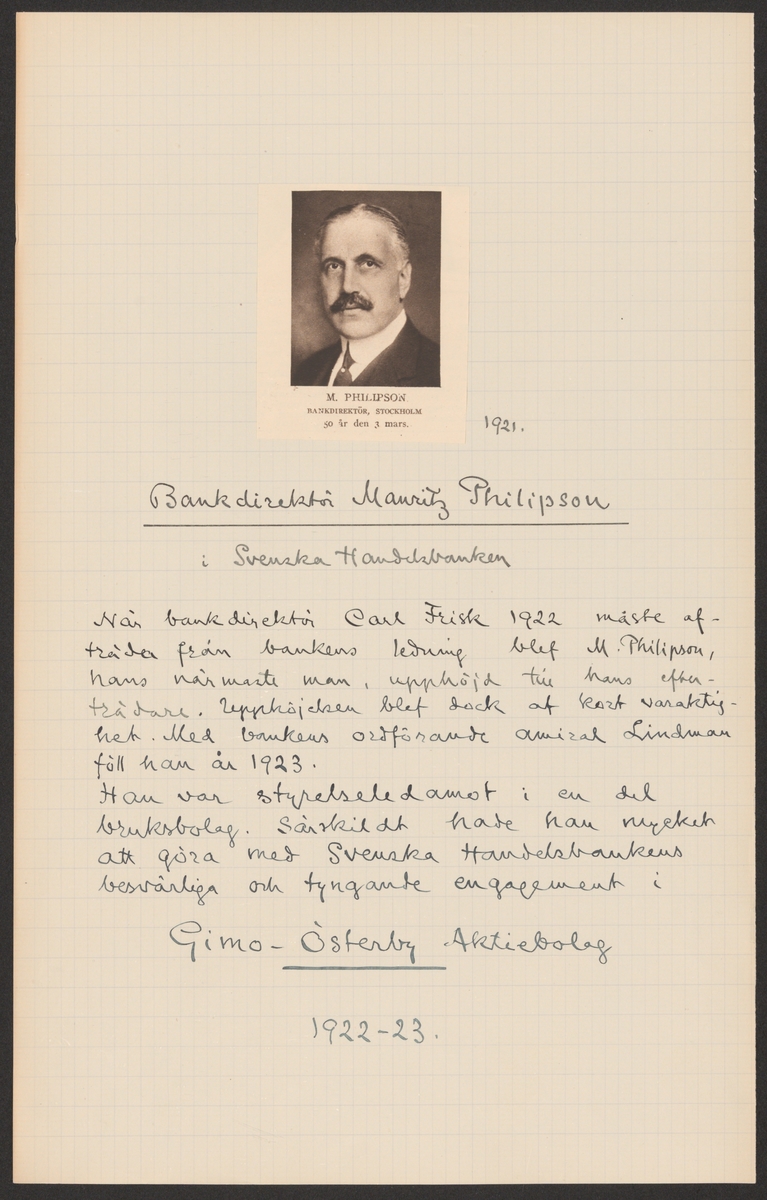 M. PHILIPSON
BANKDIREKTÖR, STOCKHOLM
50 år den 3 mars.
1921.
Bankdirektör Mauritz Philipson
i Svenska Handelsbanken
När bankdirektör Carl Frisk 1922 måste af-
träda från bankens ledning blef M. Philipson,
hans närmaste man, upphöjd till hans efter-
trädare. Upphöjelsen blef dock af kort varaktig-
het. Med bankens ordförande amiral Lindman
föll han år 1923.
Han var styrelseledamot i en del
bruksbolag. Särskildt hade han mycket
att göra med Svenska Handelsbankens
besvärliga och tyngande engagement i
Gimo-Österby Aktiebolag
1922-23.